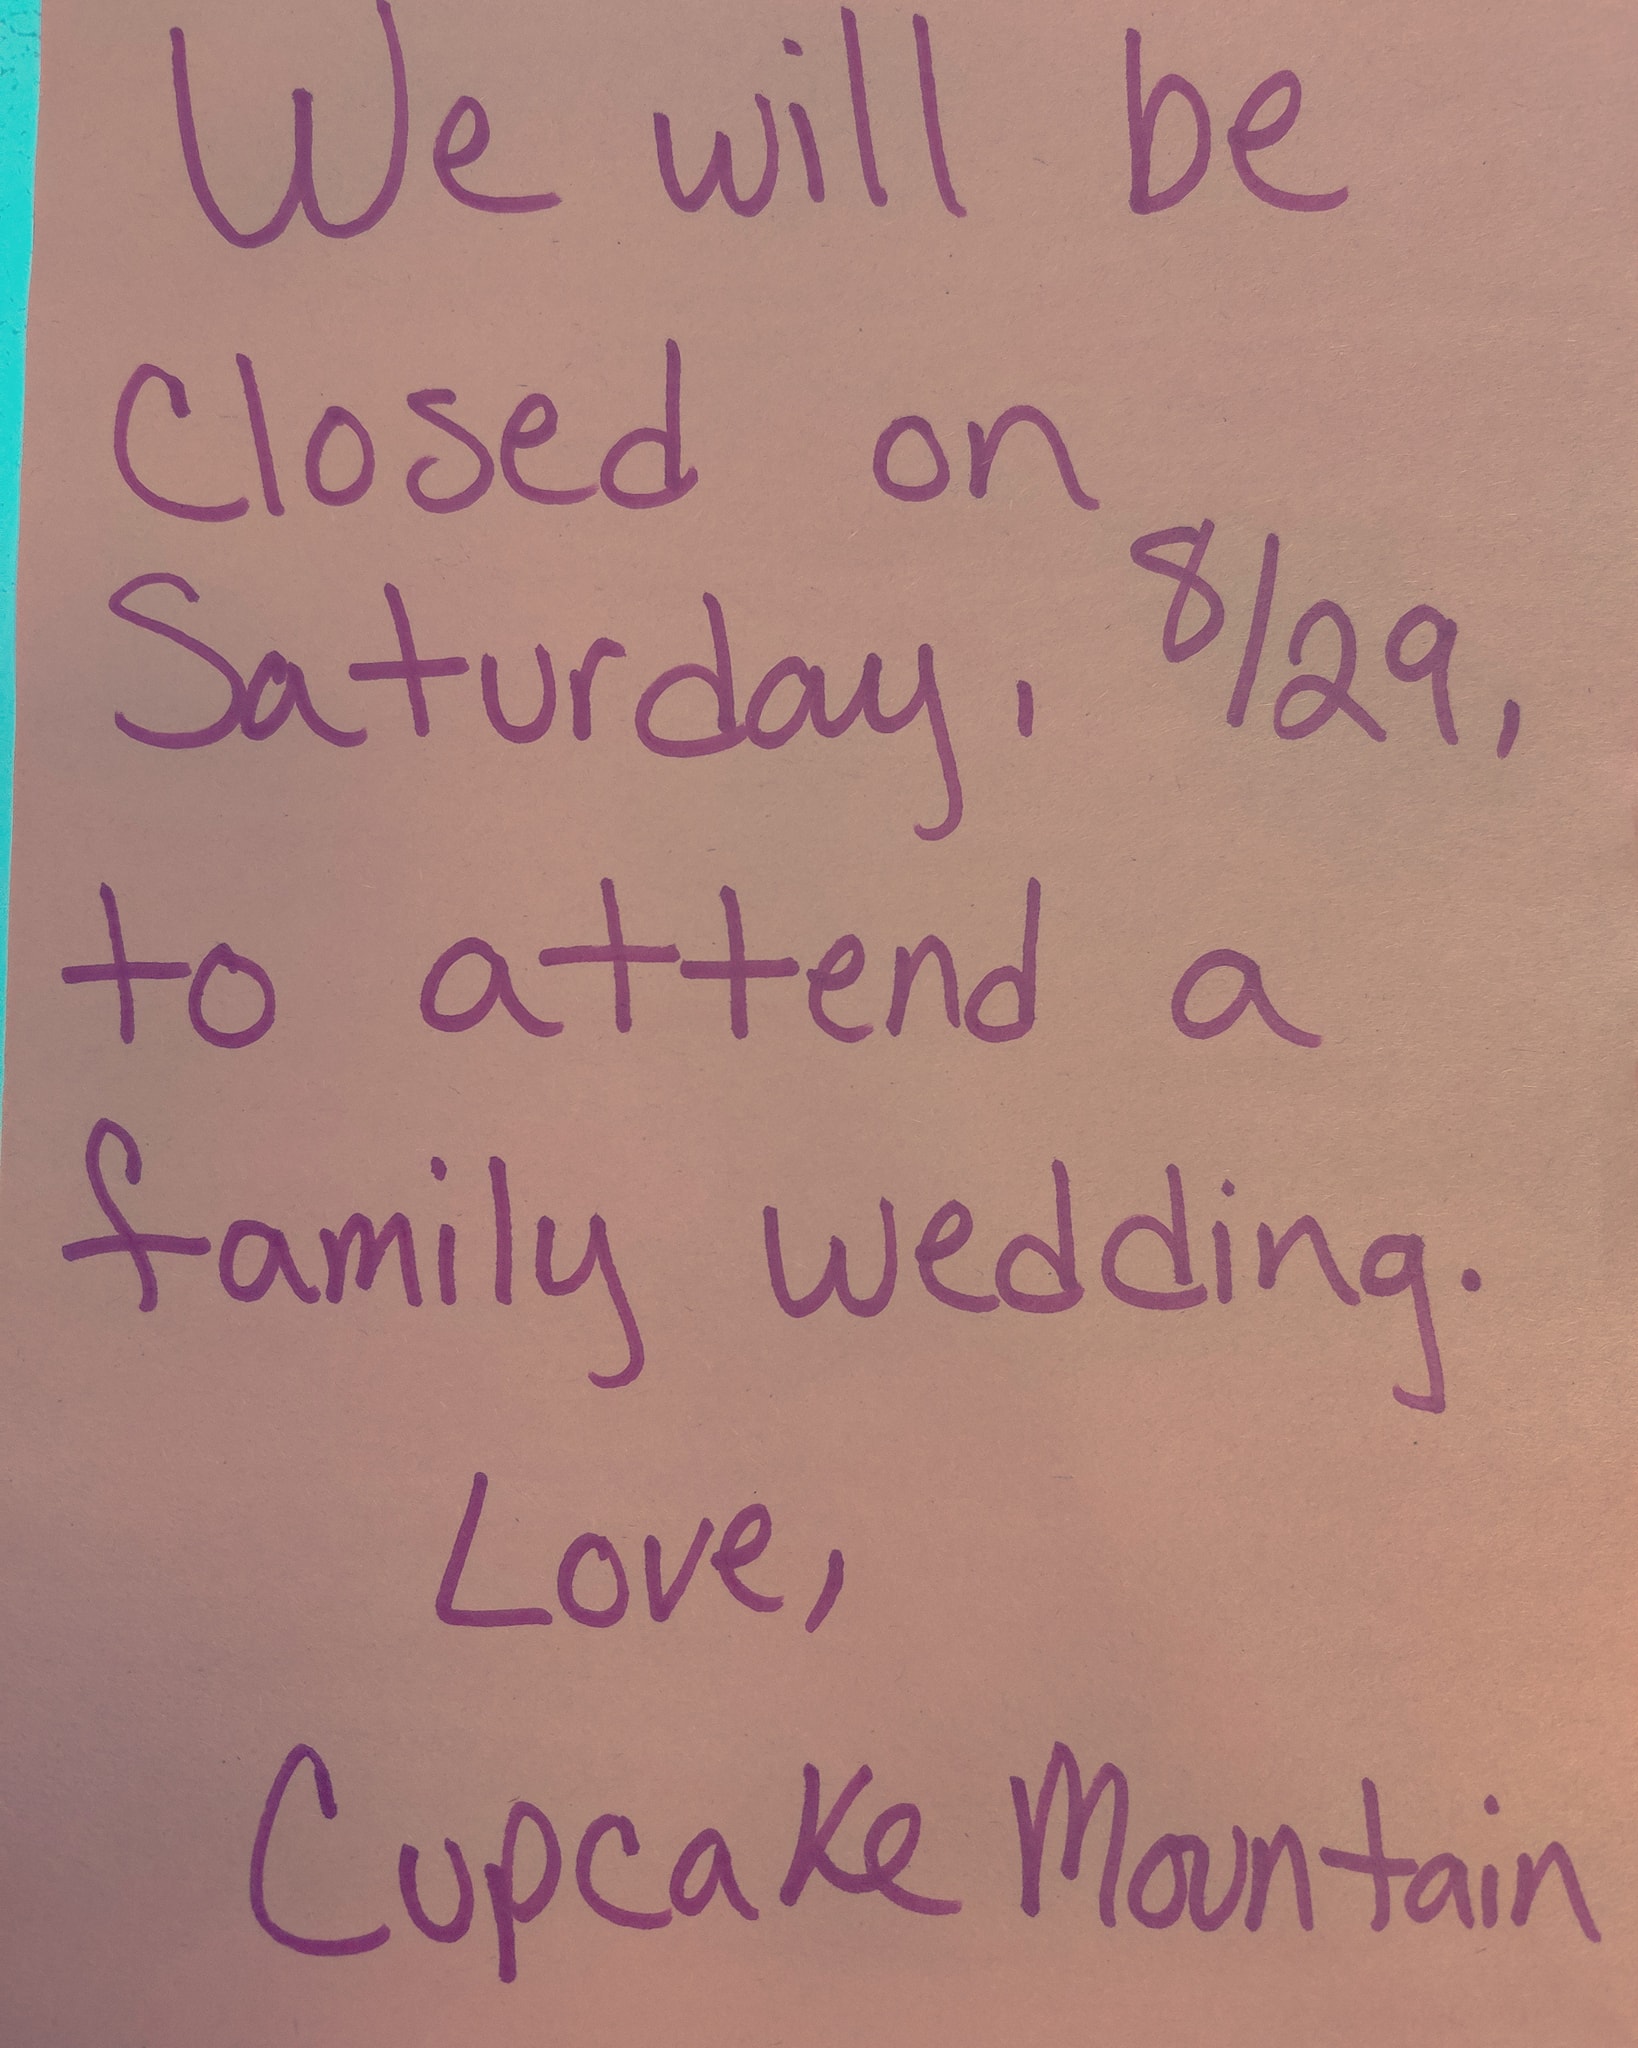 We will be
Closed on
Saturday, 8/29,
to attend a
family wedding.
Love,
Cupcake Mountain